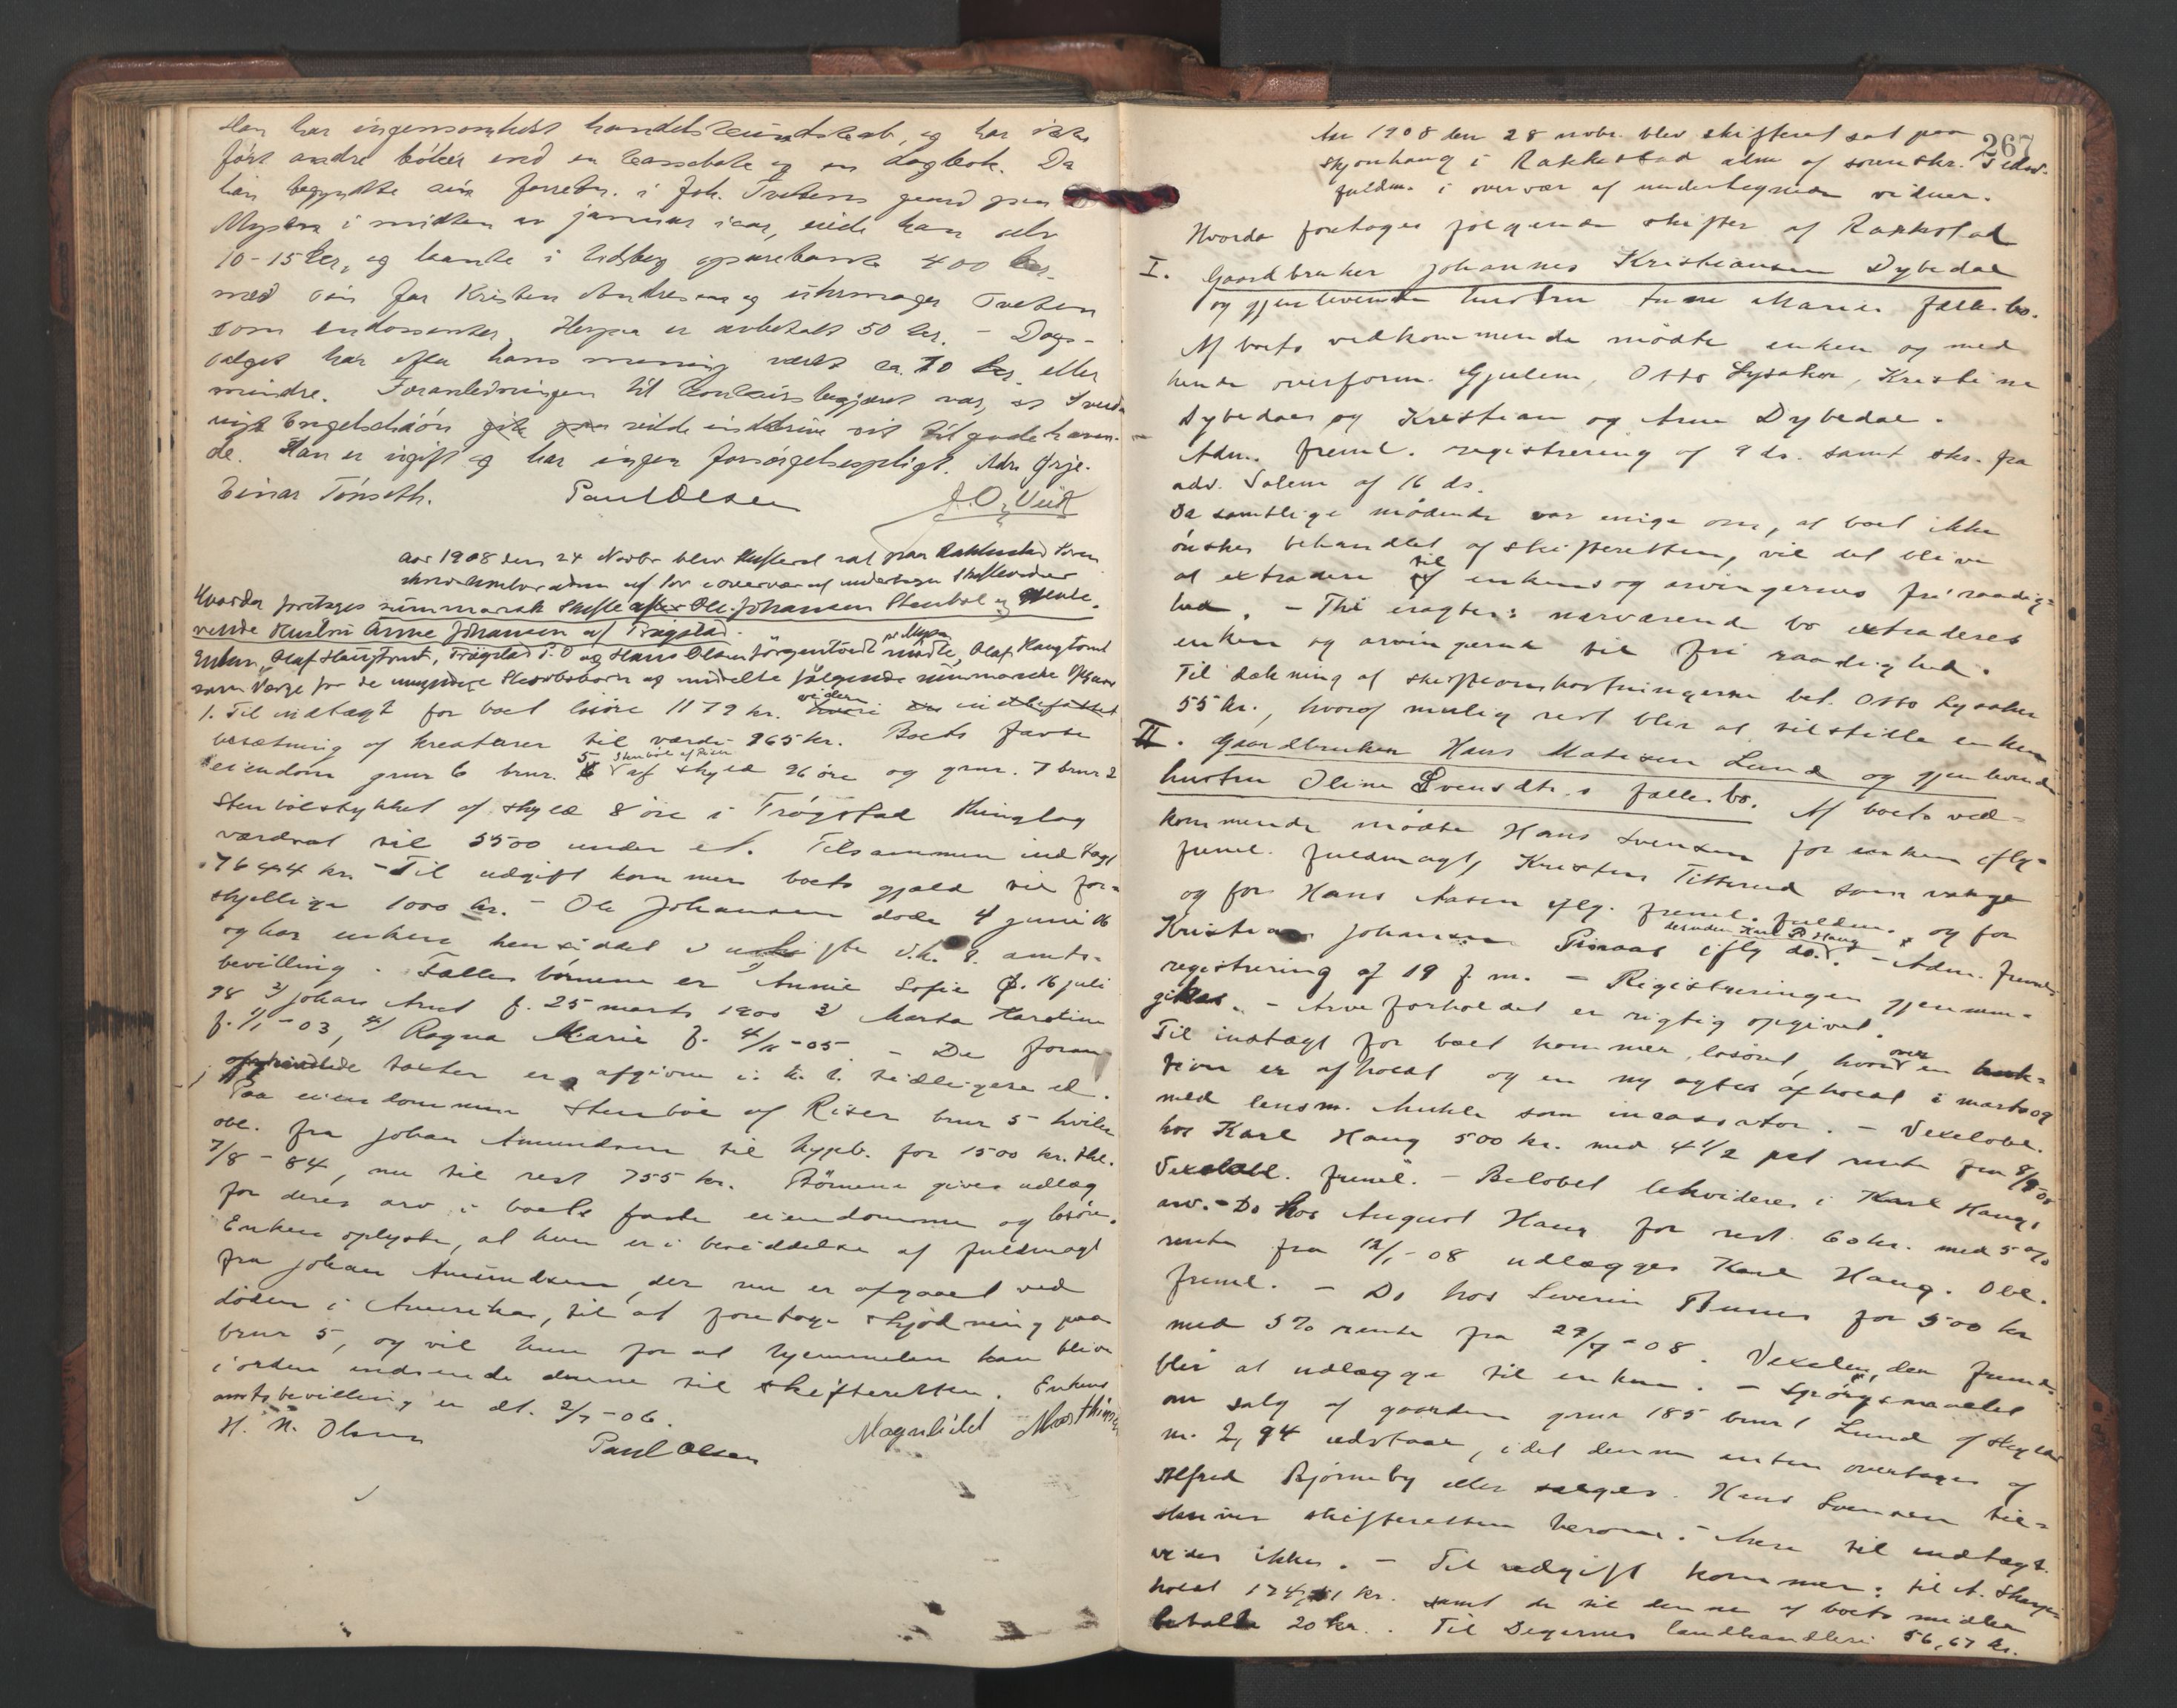 Han har ingensomhelst handelskundskab, og har ikke
ført andre bøker end en kassebok og en dagbok. Da
han begyndte sin forretn. i Joh. Tvetens gaard paa
Mysen i midten av januar iaar, eiede han selv
10-15 kr., og laante i Eidsberg sparebank 400 kr.
med sin far Kristen Andresen og uhrmager Tveten
som endossenter. Herpaa er avbetalt 50 kr. - Dags-
salget har efter hans mening været ca. 70 kr. eller
mindre. Foranledningen til konkursbegjæret var, at
Engelschiøn gik paa vilde inddrive sit tilgodehaven-
de. Han er ugift og har ingen forsørgelsespligt. Adr. Ørje.
Einar Tönseth. Paul Olsen
Aar 1908 den 24 Novbr blev skifteret sat paa Rakkestad Soren-
skriverembor adm af Sor i overvær af undertegn Skiftevidner
Hvorda foretages summarisk Skifte efter Ole Johansen Stenbøl og Efterle-
vende Hustru Anne Johansen af Trøgstad.
Enken, Olaf Haugtomt, Trøgstad P.O og Hans Olsen Jörgentvedt pr Mysen mødte, Olaf Haugtomt
som Værge for de umyndige og meddelte følgende summariske
1. Til indtægt for boet løsøre 1179 kr. hvori videre er indbefattet
besætning af kreaturer til værdi 965 kr. Boets faste
eiendom gnr 6 brnr. 5 Stenbøl af Riser af skyld 96 øre og gnr. 7 brnr 2
Stenbølstykket af skyld 8 øre i Trøgstad thinglag
værdsat til 5500 under et. Tilsammen indtægt
7644 kr. - Til udgift kommer boets gjæld til for-
skjellige 1000 kr. - Ole Johansen døde 4 juni 06
og har enken hensiddet i uskifte i.h.t. amts-
bevilling. Fælles børnene er 1) Annie Sofie f. 16 juli
98 2) Johan Arnt f. 25 marts 1900 3) Marta Karoline
f. 1/1-03, 4) Ragna Marie f. 4/11-05. - De foran
taxter er afgivne i. h. t. tidligere el.
Paa eiendommen Stenbøl af Riser brnr 5 hviler
obl. fra Johan Amundsen til hypb. for 1500 kr. thl.
7/8-84, nu til rest 755 kr. Börnene gives udlæg
for deres arv i boets faste eiendomme og løsøre.
Enken oplyste, at hun er i besiddelse af fuldmagt
fra Johan Amundsen, der nu er afgaaet ved
døden i Amerika, til at foretage skjødning paa
brnr 5, og vil hun for at hjemmelen kan blive
i orden indsende denne til skifteretten. Enkens
amtsbevilling er dt. 2/7-06.
H. N. Olsen Paul Olsen Magnhild Marthinsen
267
Aar 1908 den 28 nobr. blev skifteret sat paa
Skjønhaug i Rakkestad adm af sorenskr.
fuldm. i overvær af undertegnede vidner.
Hvorda foretoges følgende skifter af Rakkestad
I. Gaardbruker Johannes Kristiansen Dybedal
og gjenlevende hustru Marie fælles bo.
Af boets vedkommende mødte enken og med
hende overform. Gjulem, Otto Lysaker, Kristine
Dybedal og Kristian og Arne Dybedal.
Adm. freml. registrering af 9 ds. samt skr. fra
adv. Solem af 16 ds.
Da samtlige mødende var enige om, at boet ikke
ønskes behandlet af skifteretten, vil det blive
at extradere til enkens og arvingernes fri raadig-
hed. - Thi eragtes: nærværende bo extraderes
enken og arvingerne til fri raadighed.
Til dækning af skifteomkostningerne bet. Otto Lysaker
55 kr., hvoraf mulig rest blir at tilstille enken
II. Gaardbruker Hans Matisen Lund og gjenlevende
hustru Oline Svensdtr.s fælles bo. Af boets ved-
kommende mødte Hans Svensen for enken iflg.
freml. fuldmagt, Kristen Titterud som værge
og for Hans Aasen iflg. freml. fuldm. og for
Kristian Johansen iflg do. desuden Karl Haug - Adm. freml.
registrering af 19 f. m. - Registreringen gjennem-
gikkes. - Arveforholdet er rigtig opgivet.
Til indtægt for boet kommer løsøret, hvorover en auk-
tion er afholdt og en ny agtes afholdt i marts og
med lensm. Muhle som incassator. - Vexelobl.
hos Karl Haug 500 kr. med 4 1/2 pct rente fra
Vexelobl. freml. - Beløbet likvideres i Karl Haugs
arv. - Do hos August Haug for rest 60 kr. med 5 %
rente fra 12/1-08 udlægges Karl Haug. Obl.
freml. - Do hos Severin for 500 kr
med 5% rente fra 29/7-08. Vexelen, den freml.
blir at udlægge til enken. - Spørgsmaalet
om salg af gaarden gnr 185 brnr 1 Lund af skyld
m. 2,94 udstaar, idet denne enten overtages af
Alfred Bjørneby eller sælges. Hans Svensen til-
skriver skifteretten herom. - Mere til indtægt
vides ikke. - Til udgift kommer: til A. Skarp-
holt 174,51 kr. samt de til denne af boets midler
betalte 20 kr. Til Degernes landhandleri 56,67 kr.